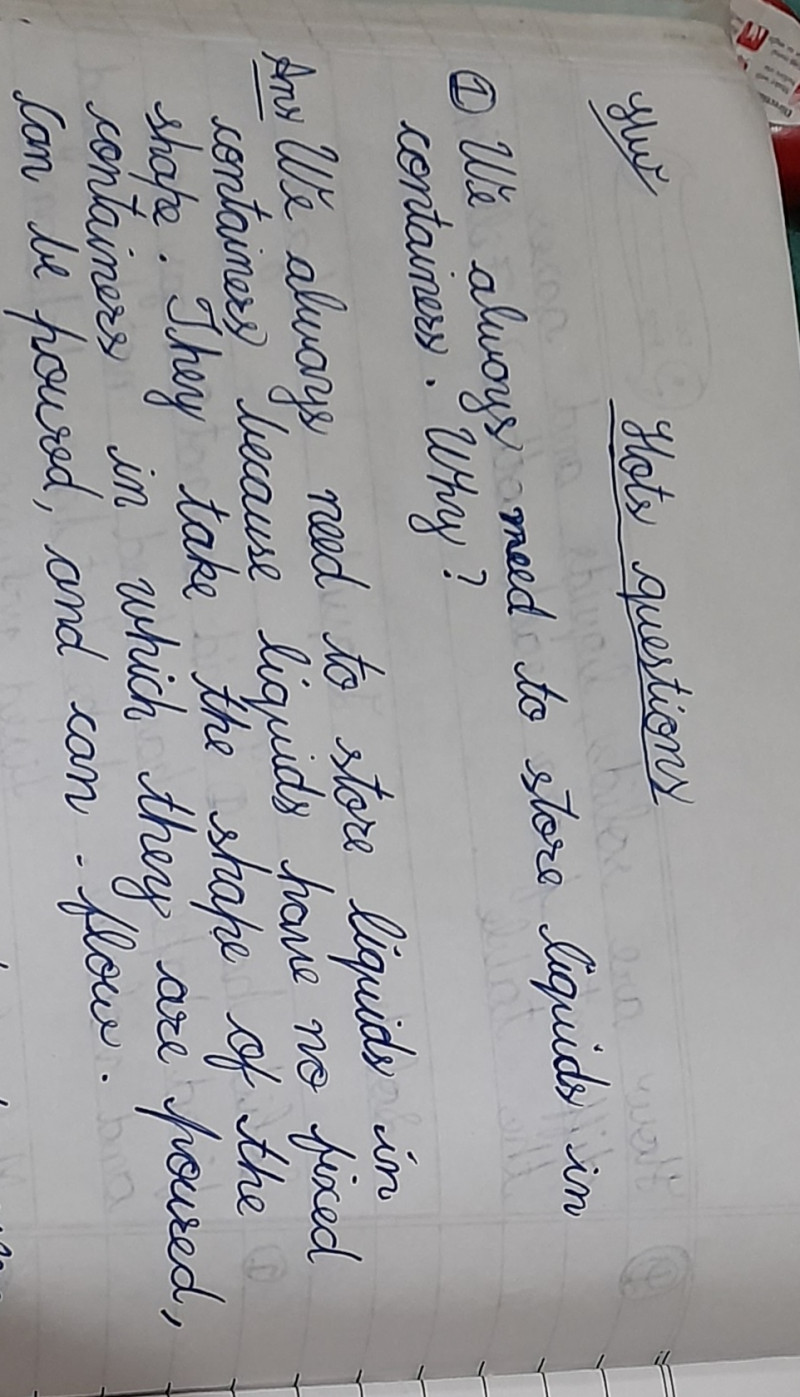 H/W
Hots questions
① We always need to store liquids in
containers. Why?
Ans We always need to store liquids in
containers because liquids have no fixed
shape. They take the shape of the
containers in which they are poured,
can be poured, and can - flow.